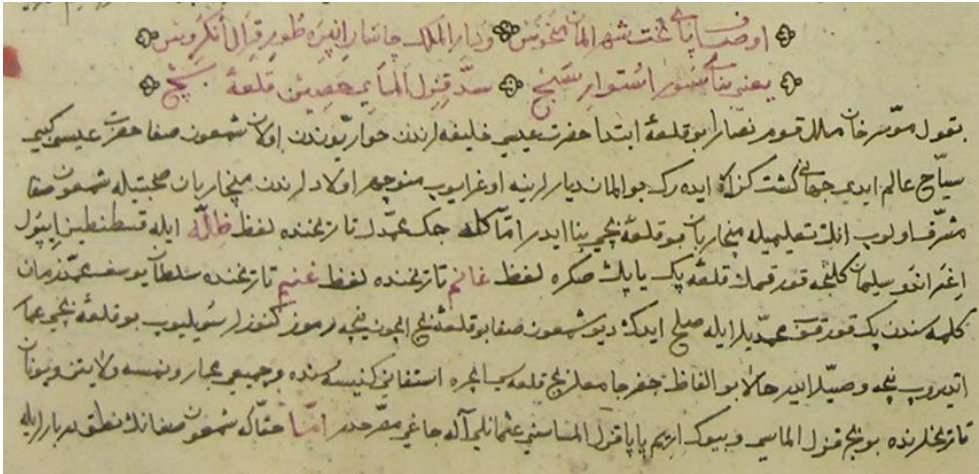 اوصاف پای تخت شهر المان منحوس ودار الملك چاسار انپیره ظهور قرال انكروس
یعنی بنا كسور استوار سج سد قزل المای حصین قلعهٔ بج
بقول مورخان ملل قوم نصارا بو قلعهٔ ابتدا حضرت عیسی خلیفه لرندن حواریوندن اولان شمعون صفا حضرت عیسی كبی
سیاح عالم ایدی جهانی كشت كذار ایده رك بو المان دیارلرینه اوغرایوب منوچهر اولادلرندن منچاریان محبتیله شمعون صفا
مشرف اولوب انك تعلیمیله منچاریان بو قلعهٔ بجی بنا ایدر اما كله جك محمدك تاریخنده لفظ ظالة ایله قسطنطین
سلیمان كلنجه قورقمك قلعهٔ پك یاپك صكره لفظ غانم تاریخنده لفظ غنیم تاریخنده سلطان یوسف محمد زمان
كلمه سندن پك قورقوب محمدیلر ایله صلح ایدك دیو شمعون صفا بو قلعهٔ بج ایچون نیجه رموز كنوزلر سویلیوب بو قلعهٔ بجی عمار
اتدیروب نیجه وصیتلر ایدر حالا بو الفاظ جفر جامعلر بج قلعه سی ایچره استفانی كنیسه سنده و جمیعی مجار و نمسه ولایتن و یونان
تاریخلرنده بو بج قزل الماسی و بیوك ایریم پاپا قزل الماسنی عثمانلی آله جاغی مقرردر اما حقا كه شمعون صفانك نطق درربارلریله